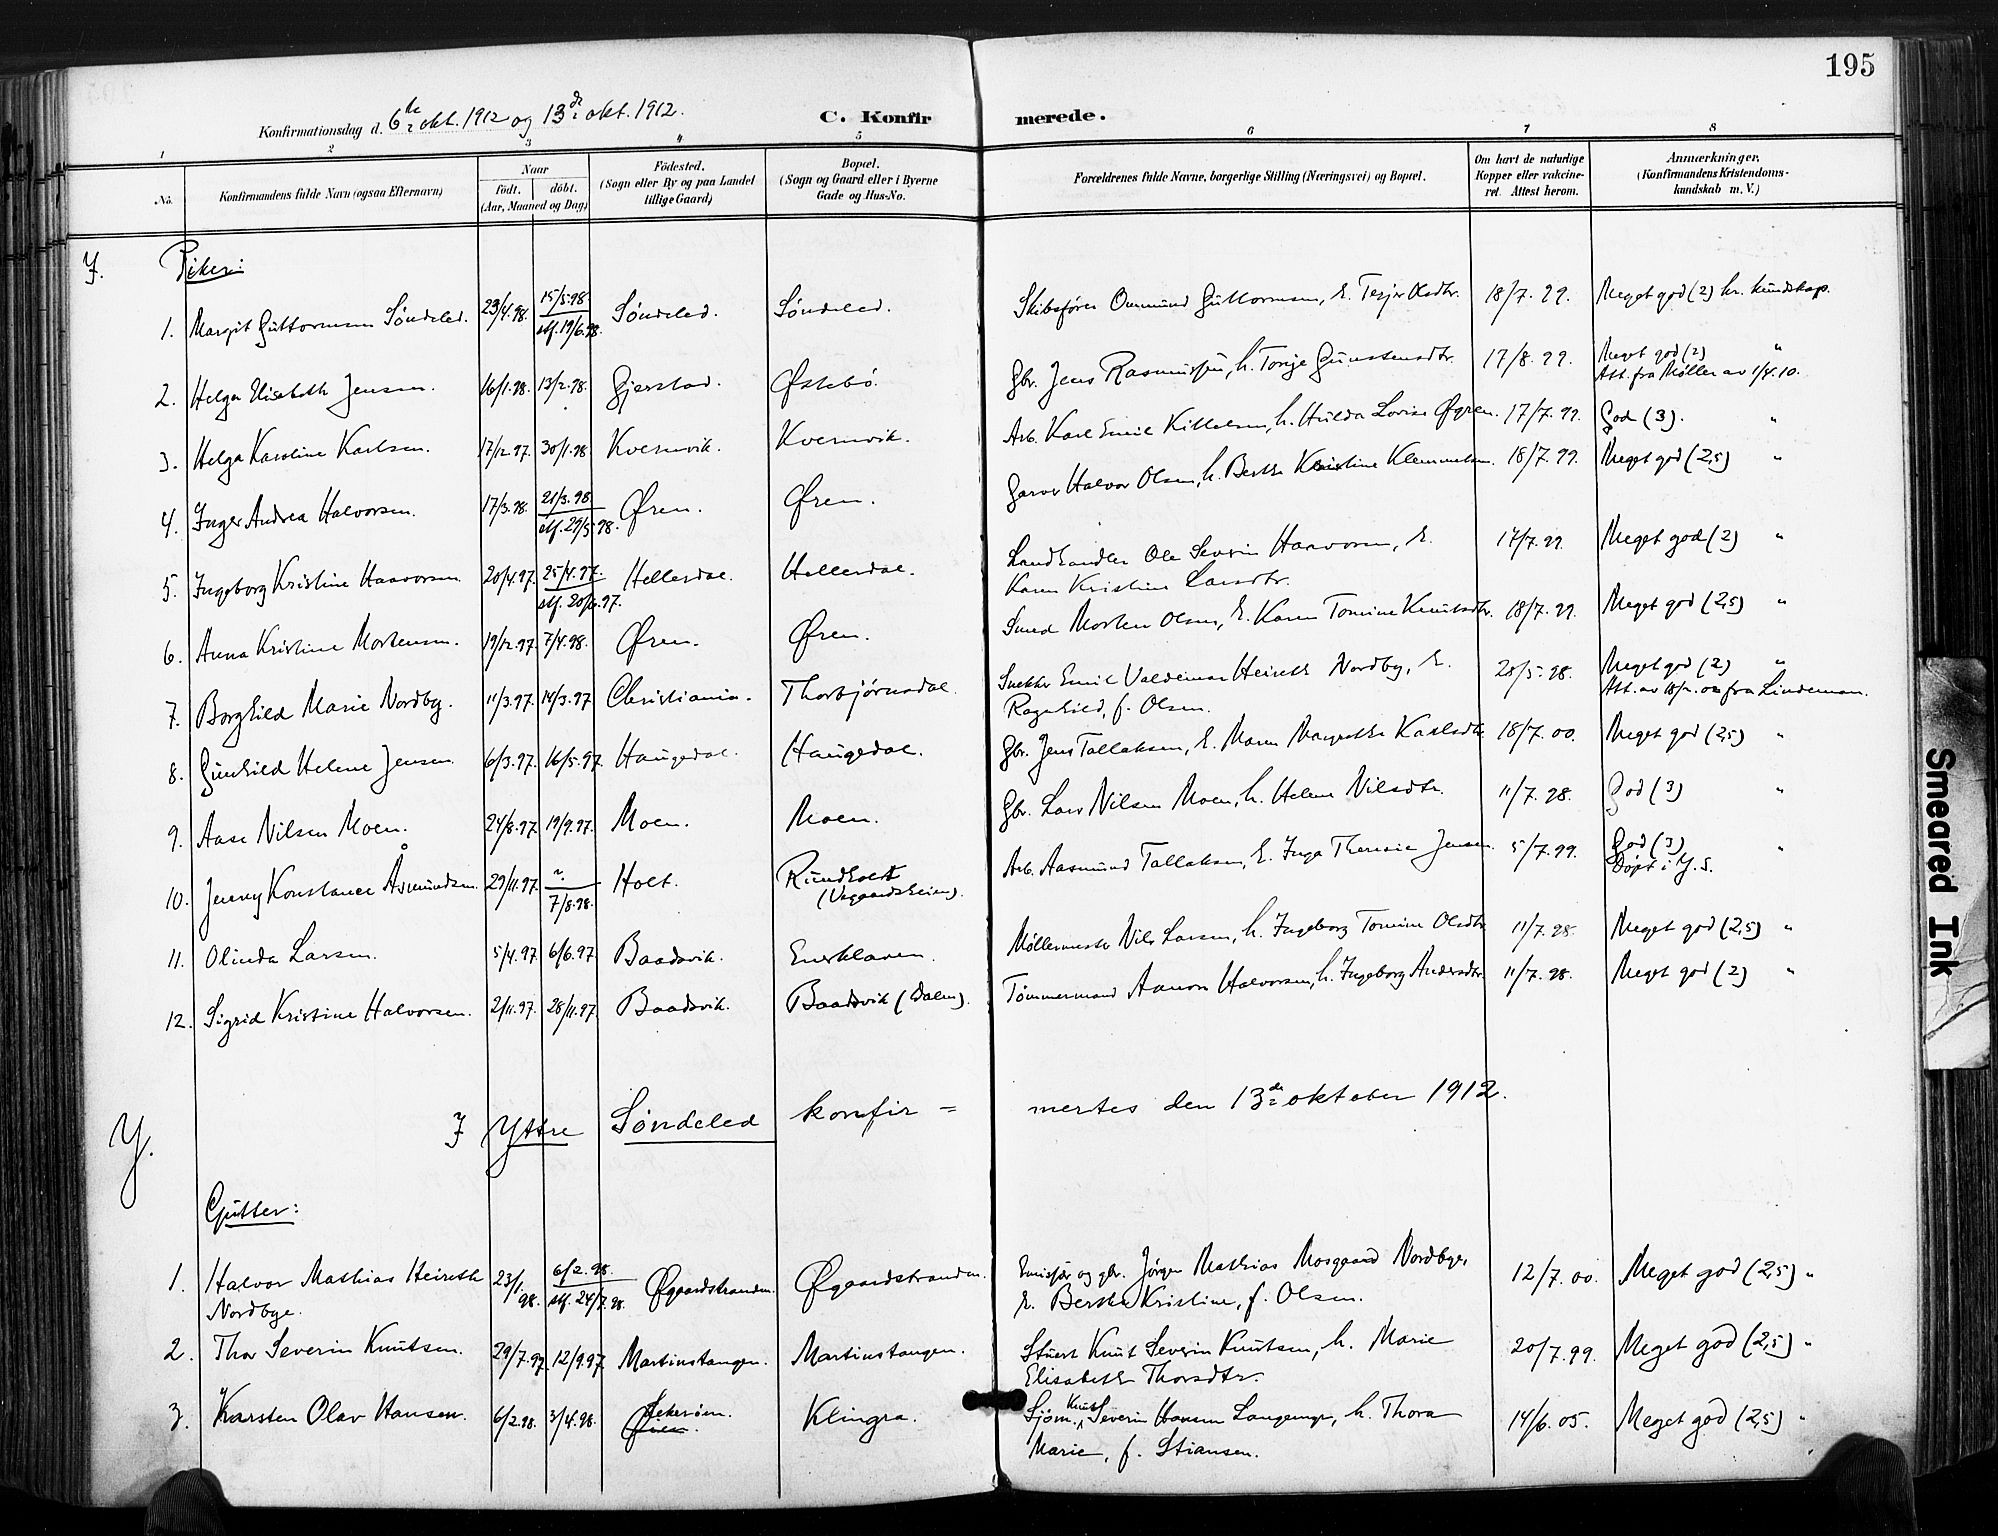 195
Konfirmationsdag d. 6te okt. 1912 og 13de okt. 1912.
C. Konfirmerede.
1 2 3 4 5 6 7 8
No. Konfirmandens fulde Navn (ogsaa Efternavn)
Naar født. døbt. (Aar, Maaned og Dag)
Fødested. (Sogn eller By og paa Landet tillige Gaard)
Bopæl. (Sogn og Gaard eller i Byerne Gade og Hus-No.
Forældrenes fulde Navne, borgerlige Stilling (Næringsvei) og Bopæl.
Om havt de naturlige Kopper eller vakcineret. Attest herom.
Anmærkninger. (Konfirmandens Kristendomskundskab m. V.)
Y. Piker:
1. Margit Guttormsen Søndeled. 23/4.98. 15/5.98. stf. 19/6.98. Søndeled. Søndeled. Skibsfører Ommund Guttormsen, h. Terjer Olsdtr. 18/7.99. Meget god (2) kr. kundskap.
2. Helga Elisabeth Jensen. 16/1.98. 13/2.98. Gjerstad. Østebø. Gbr. Jens Rasmussen, h. Tonje Gunstensdtr. 17/8.99. Meget god (2) "
Att. fra Møller av 1/4.10.
3. Helga Karoline Karlsen. 17/12.97. 30/1.98. Kvernvik. Kvernvik. Arb. Karl Emil Kittelsen, h. Hulda Lovise Øgren. 17/7.99. God (3). "
4. Inger Andrea Halvorsen. 17/3.98. 21/3.98. stf. 29/5.98. Øren. Øren. Garver Halvor Olsen, h. Berthe Kristine Klemmetsen. 18/7.99. Meget god (2,5) "
5. Ingeborg Kristine Haavorsen. 20/4.97. 25/4.97. stf. 20/6.97. Hellersdal. Hellersdal. Landhandler Ole Severin Haavorsen, h.
Karen Kristine Larsdtr. 17/7.99. Meget god (2) "
6. Anna Kristine Mortensen. 19/12.97. 7/4.98. Øren. Øren. Smed Morten Olsen, h. Karen Tomine Knutsdtr. 18/7.99. Meget god (2,5) "
7. Borghild Marie Nordby. 11/3.97. 14/3.97 Christiania. Thorbjørnsdal. Snekker Emil Valdemar Heireth Nordby, h.
Ragnhild, f. Olsen. 20/5.98. Meget god (2) "
Att. av fra Lindeman.
8. Gunhild Helene Jensen. 6/3.97. 16/5.97. Haugedal. Haugedal. Gbr. Jens Tallaksen, h. Maren Margrethe Karlsdtr. 18/7.00. Meget god (2,5) "
9. Aase Nilsen Moen. 24/8.97. 19/9.97. Moen. Moen. Gbr. Lars Nilsen Moen, h. Helene Nilsdtr. 11/7.98. God (3) "
10. Jenny Konstance Åsmundsen. 29/11.97. ? 7/8.98. Holt. Rundholt
(Vegaardsheien). Arb. Aasmund Tallaksen, h. Inga Theresie Jensen. 5/7.99. God (3) "
Døpt i Y. S.
11. Olinda Larsen. 5/4.97. 6/6.97. Baadsvik. Enerklaven. Møllermester Nils Larsen, h. Ingeborg Tomine Olsdtr. 11/7.98. Meget god (2,5) "
12. Sigrid Kristine Halvorsen. 2/11.97. 28/11.97. Baadsvik. Baadsvik (Dalen). Tømmermand Aanon Halvorsen, h. Ingeborg Andersdtr. 11/7.98. Meget god (2) "
Y. I Ytre Søndeled konfir=mertes den 13de oktober 1912.
Gutter:
1. Halvor Mathias Heireth
Nordbye. 23/1.98. 6/2.98. stf. 24/7.98. Øgaardstranden. Øgaardstranden. og gbr. Jørgen Mathias Mosgaard Nordbye,
h. Berthe Kristine, f. Olsen. 12/7.00. Meget god (2,5) "
2. Thor Severin Knutsen. 29/7.97. 12/9.97 Martinstangen. Martinstangen. Stuert Knut Severin Knutsen, h. Marie
Elisabeth Thorsdtr. 20/7.99. Meget god (2,5) "
3. Karsten Olav Hansen. 6/2.98. 3/4.98. Klingra. Sjøm. Knut Severin Hansen h. Thora
Marie, f. Stiansen. 14/6.05. Meget god (2,5) "
Smeared Ink